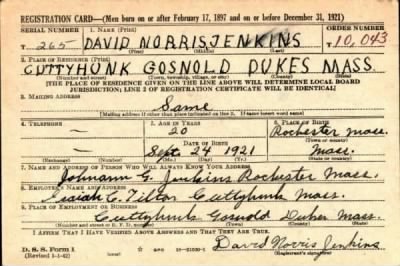 REGISTRATION CARD—(Men born on or after February 17, 1897 and on or before December 31, 1921)
SERIAL NUMBER 1. NAME (Print) ORDER NUMBER
T 265 DAVID NORRIS JENKINS T10,043
(First) (Middle) (Last)
2. PLACE OF RESIDENCE (Print)
CUTTYHUNK GOSNOLD DUKES MASS.
(Number and street) (Town, township, village, or city) (County) (State)
[THE PLACE OF RESIDENCE GIVEN ON THE LINE ABOVE WILL DETERMINE LOCAL BOARD
JURISDICTION; LINE 2 OF REGISTRATION CERTIFICATE WILL BE IDENTICAL]
3. MAILING ADDRESS
Same
[Mailing address if other than place indicated on line 2. If same insert word same]
4. TELEPHONE 5. AGE IN YEARS 6. PLACE OF BIRTH
— 20 Rochester Mass.
DATE OF BIRTH (Town or county)
— Sept. 24 1921 Mass.
(Exchange) (Number) (Mo.) (Day) (Yr.) (State or country)
7. NAME AND ADDRESS OF PERSON WHO WILL ALWAYS KNOW YOUR ADDRESS
G. Jenkins Rochester Mass.
8. EMPLOYER'S NAME AND ADDRESS
Isaiah C. Tilton Cuttyhunk Mass.
9. PLACE OF EMPLOYMENT OR BUSINESS
Cuttyhunk Gosnold Dukes Mass.
(Number and street or R. F. D. number) (Town) (County) (State)
I AFFIRM THAT I HAVE VERIFIED ABOVE ANSWERS AND THAT THEY ARE TRUE.
D. S. S. Form 1
(Revised 1-1-42) GPO David Norris Jenkins
(Registrant's signature)